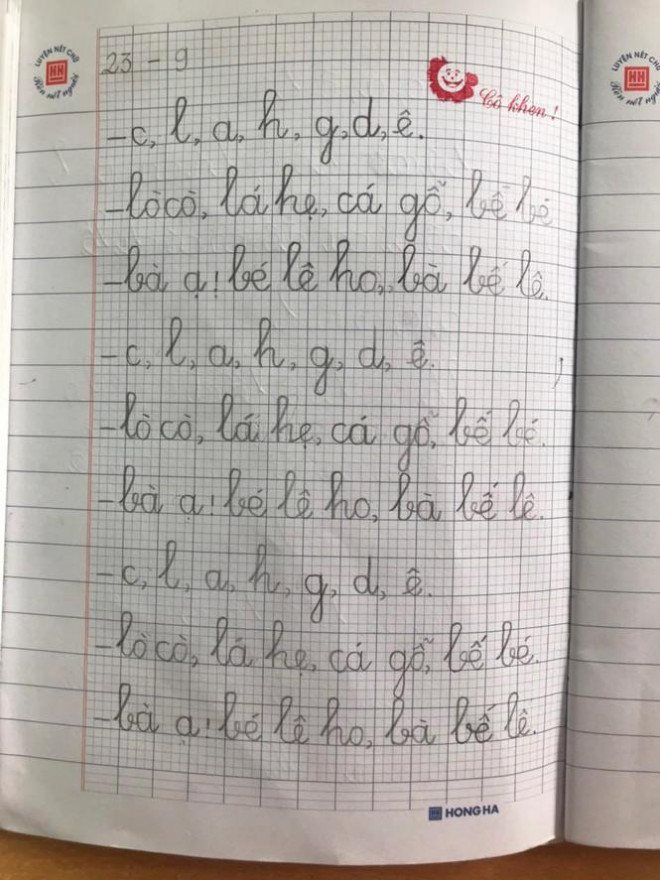 LUYỆN NÉT CHỮ
Rèn nết người
23 - 9
Cô khen!
- c, l, a, h, g, d, ê.
- lò cò, lá hẹ, cá gỗ, bế bé
- bà ạ! bé lê ho, bà bế lê.
- c, l, a, h, g, d, ê.
- lò cò, lá hẹ, cá gỗ, bế bé.
- bà ạ! bé lê ho, bà bế lê.
- c, l, a, h, g, d, ê.
- lò cò, lá hẹ, cá gỗ, bế bé.
- bà ạ! bé lê ho, bà bế lê.
HH HONG HA
LUYỆN NÉT CHỮ
HH
Rèn nết người